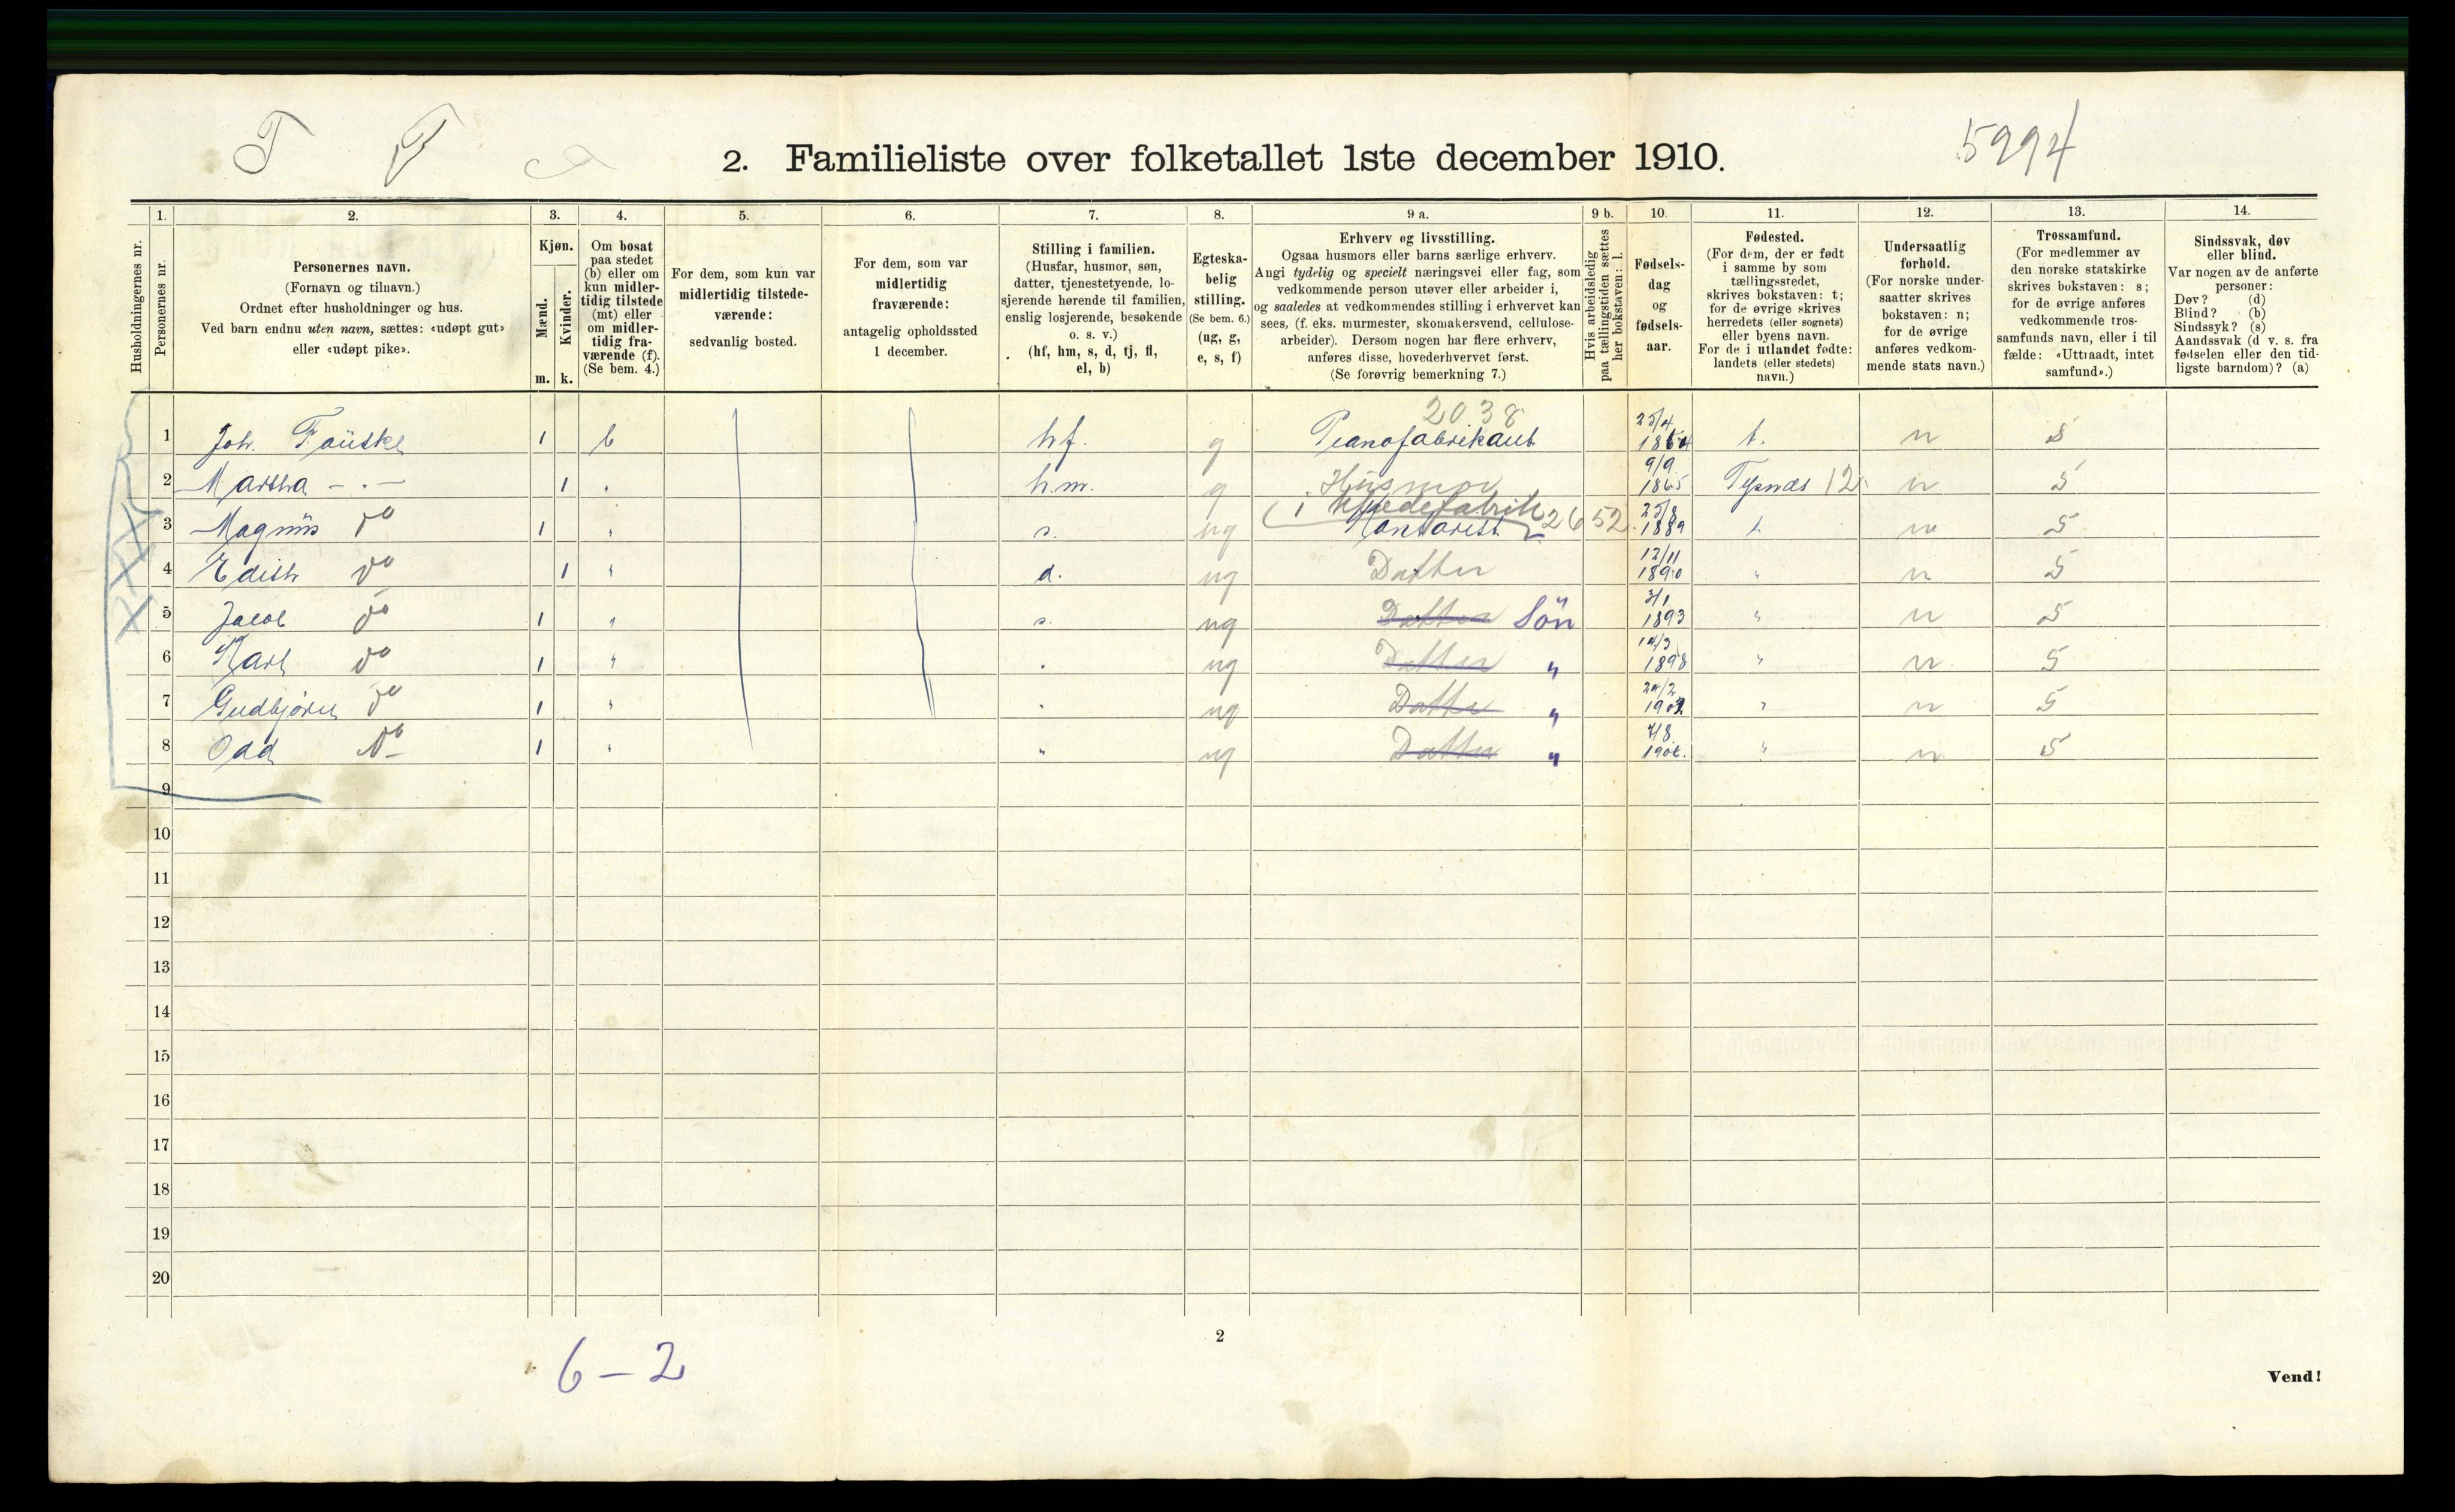 2. Familieliste over folketallet 1ste december 1910.
5994
Husholdningernes nr.
1.
Personernes nr.
2.
Personernes navn.
(Fornavn og tilnavn.)
Ordnet efter husholdninger og hus.
Ved barn endnu uten navn, sættes: «udøpt gut»
eller «udøpt pike».
3.
Kjøn.
Mænd.
Kvinder.
m. k.
4.
Om bosat
paa stedet
(b) eller om
kun midler-
tidig tilstede
(mt) eller
om midler-
tidig fra-
værende (f).
(Se bem. 4.)
5.
For dem, som kun var
midlertidig tilstede-
værende:
sedvanlig bosted.
6.
For dem, som var
midlertidig
fraværende:
antagelig opholdssted
1 december.
7.
Stilling i familien.
(Husfar, husmor, søn,
datter, tjenestetyende, lo-
sjerende hørende til familien,
enslig losjerende, besøkende
o. s. v.)
(hf, hm, s, d, tj, fl,
el, b)
8.
Egteska-
belig
stilling.
(Se bem. 6.)
(ug, g,
e, s, f)
9 a.
Erhverv og livsstilling.
Ogsaa husmors eller barns særlige erhverv.
Angi tydelig og specielt næringsvei eller fag, som
vedkommende person utøver eller arbeider i,
og saaledes at vedkommendes stilling i erhvervet kan
sees, (f. eks. murmester, skomakersvend, cellulose-
arbeider). Dersom nogen har flere erhverv,
anføres disse, hovederhvervet først.
(Se forøvrig bemerkning 7.)
9 b.
Hvis arbeidsledig
paa tællingstiden sættes
her bokstaven: l.
10.
Fødsels-
dag
og
fødsels-
aar.
11.
Fødested.
(For dem, der er født
i samme by som
tællingsstedet,
skrives bokstaven: t;
for de øvrige skrives
herredets (eller sognets)
eller byens navn.
For de i utlandet fødte:
landets (eller stedets)
navn.)
12.
Undersaatlig
forhold.
(For norske under-
saatter skrives
bokstaven: n;
for de øvrige
anføres vedkom-
mende stats navn.)
13.
Trossamfund.
(For medlemmer av
den norske statskirke
skrives bokstaven: s;
for de øvrige anføres
vedkommende tros-
samfunds navn, eller i til
fælde: «Uttraadt, intet
samfund».)
14.
Sindssvak, døv
eller blind.
Var nogen av de anførte
personer:
Døv? (d)
Blind? (b)
Sindssyk? (s)
Aandssvak (d v. s. fra
fødselen eller den tid-
ligste barndom)? (a)
2038
1 Joh. Fauske 1 b hf. g Pianofabrikant 25/4 1864 t. n s
2 Martha - . - 1 . h.m. g Husmor 9/9 1865 Tysnæs 12 n s
3 Magnus do 1 s. ug Kontorist 2652 25/8 1889 t. n s
4 Edith do 1 " d. ug Datter 12/11 1890 " n s
5 Jacob do 1 " s. ug Datter Sön 3/1 1893 " n s
6 Karl do 1 " . ug Datter " 14/3 1898 " n s
7 Gudbjørn do 1 " " ug Datter " 24/2 1902 " n s
8 Odd do 1 " " ug Datter " 7/8 " n s
9
10
11
12
13
14
15
16
17
18
19
20
2
6 - 2
Vend!